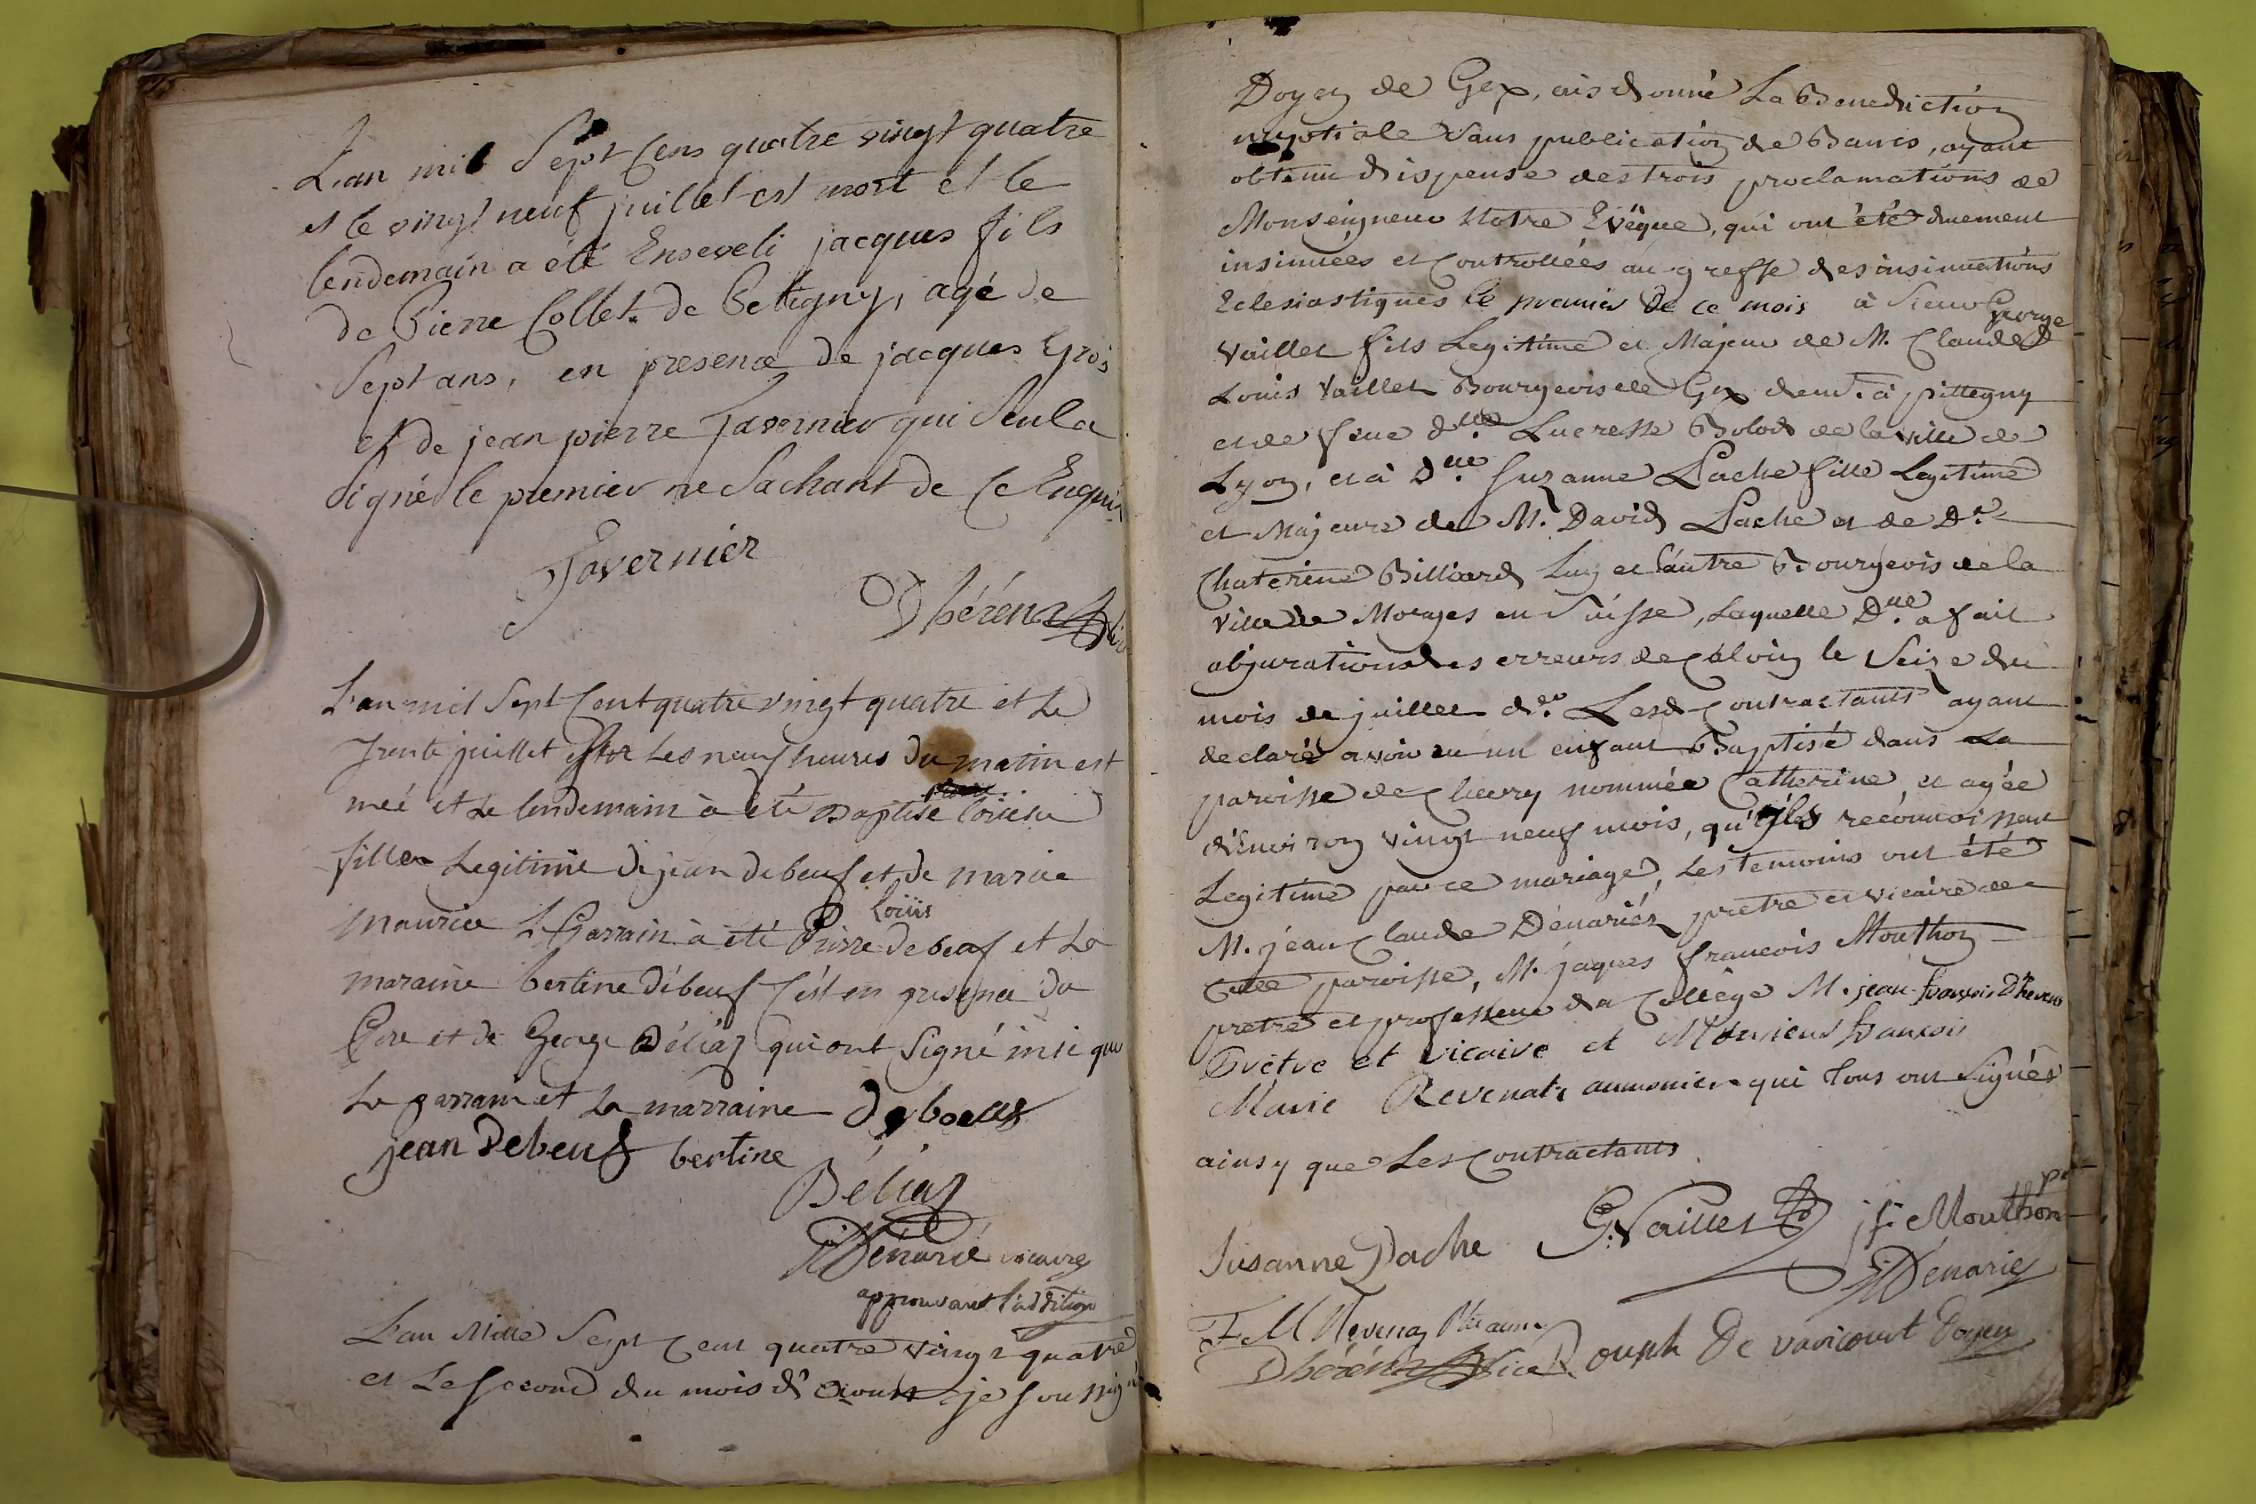 L'an mil Sept Cens quatre vingt quatre
et le vingt neuf juillet est mort et le
lendemain a été Enseveli jacques fils
de Pierre Collet de Pettigny, agé de
Sept ans, en presence de jacques Grois
et de jean pierre Tavernier qui Seul a
Signé le premier ne Sachant de Ce Enquis
Tavernier
Dhérénaz
L'an mil Sept Cent quatre vingt quatre et Le
Trente juillet Les neuf heures Du matin est
neé et Le lendemain à été Baptisé Loüise
fille Legitime de jean debeuf et de marie
maurice Le Parrain à été Pierre Loüis debeuf et La
maraine bertine débeuf C'est en presence du
Pere et de George Béliaz qui ont Signé insi que
Le parrain et La marraine Deboeuf
jean Debeuf bertine
Béliaz
Dénarié vicaire
approuvant l'addition
L'an Mille Sept Cent quatre vingt quatre
et Le second du mois d'aoust je soussigné
Doyen de Gex, ais donné La Benediction
nuptiale Sans publication de Bancs, ayant
obtenu dispense des trois proclamations de
Monseigneur Notre Evêque, qui ont été duement
insinuées et Controllées au greffe des insinuations
Eclesiastiques le premier de ce mois à Sieur George
Vaillet fils Legitime et Majeur de M. Claude
Louis Vaillet Bourgeois de Gex demt. à pittegny
et de feue dlle. Lucresse Bolod de la ville de
Lyon, et à Dlle. Suzanne Pache fille Legitime
et Majeure de M. David Pache et de De.
Chaterine Billiard Lun et l'autre Bourgeois de la
ville de Morges en Suisse, Laquelle Dlle. a fait
abjuration des erreurs de Calvin le Seize du
mois de juillet der. Lesd. Contractants ayant
declaré avoir eu un enfant Baptisé dans La
paroisse de Chevry nommée Catherine, et agée
d'environ vingt neuf mois, qu'ils reconnoissent
Legitime par ce mariage, Les temoins ont été
M. jean Claude Dénariéz pretre et vicaire de
Cette paroisse, M. jaques francois Mouthon
pretre et professeur du College M. jean françois Dherenaz
Prêtre et vicaire et Monsieur francois
Marie Revenat aumonier qui tous ont Signés
ainsy que Les Contractants
Susanne Pache G: Vaillet j f: Mouthon pr
Dénarie
F M Revenaz Ptr aum.
Dhérénaz Vice Rouph De varicourt Doyen